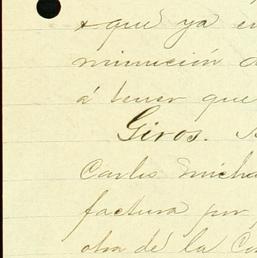 que ya en
minución d
á tener que
Giros.
Carlos Micha
factura por
otra de la Co